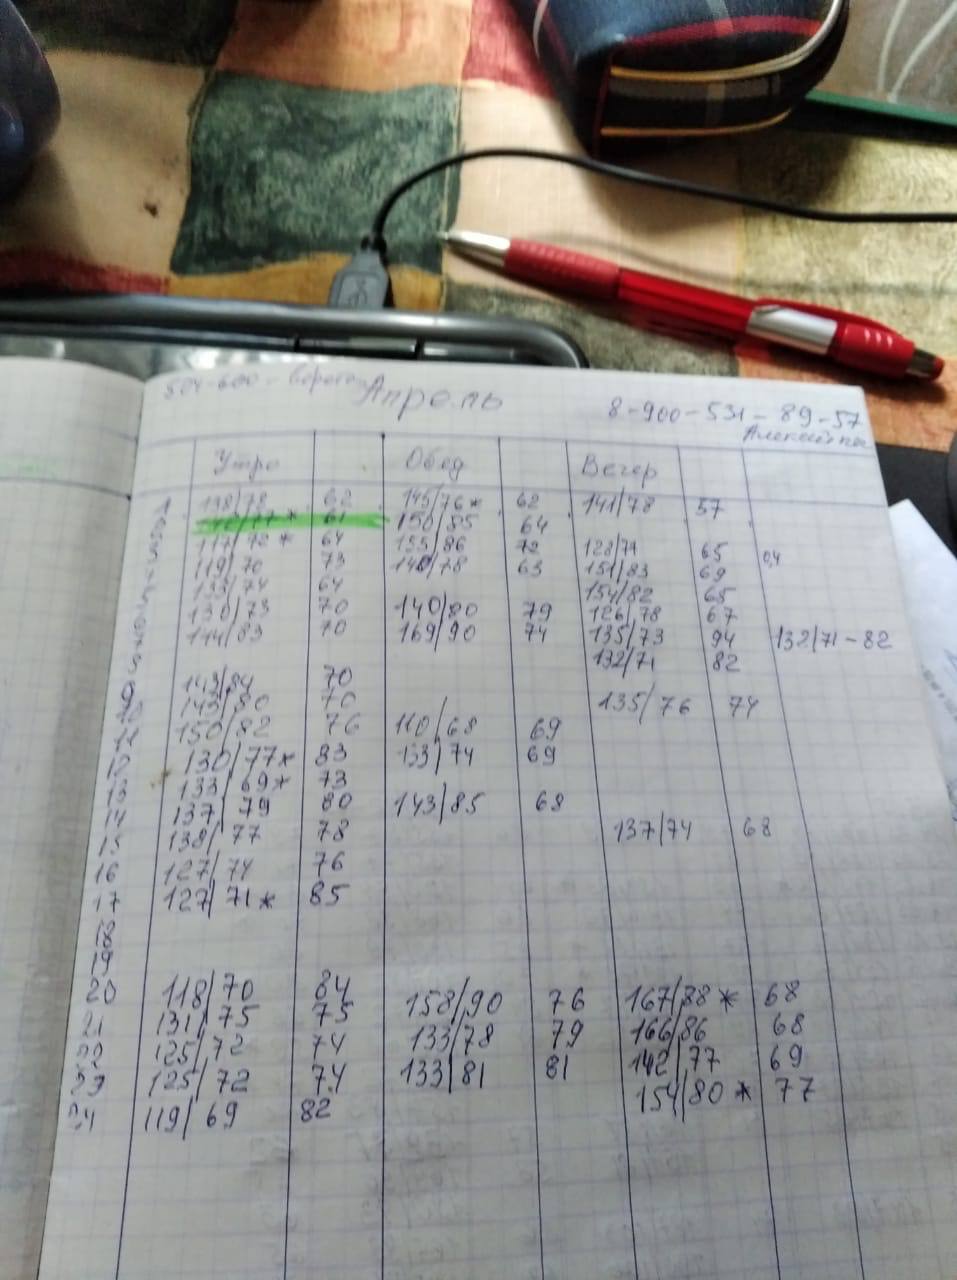 Апрель
8-900-531-89-57
Утро Обед Вечер
138/78 62 145/76* 62 141/78 57
61 150/85 64
117/72* 64 155/86 72 128/71 65 0,4
119/70 73 140/78 63 151/83 69
64 154/82 65
130/73 70 140/80 79 126/78 67
144/83 70 169/90 74 135/73 94 132/71-82
132/71 82
143/84 70
143/80 70 135/76 74
150/82 76 110/68 69
130/77* 83 133/74 69
13 133/69* 73
14 137/79 80 143/85 68
15 138/77 78 137/74 68
16 127/74 76
17 127/71* 85
18
19
20 118/70 84 158/90 76 167/88* 68
21 131/75 75 133/78 79 166/86 68
22 125/72 74 133/81 81 142/77 69
23 125/72 74 154/80* 77
24 119/69 82